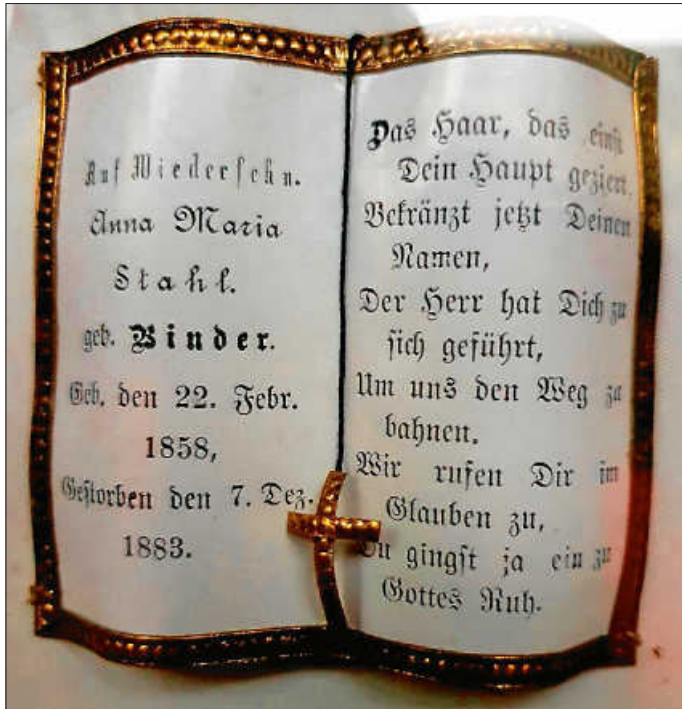 Auf Wiedersehn.
Anna Maria
Stahl.
geb. Binder.
Geb. den 22. Febr.
1858,
Gestorben den 7. Dez.
1883.
Das Haar, das einst
Dein Haupt geziert,
Bekränzt jetzt Deinen
Namen,
Der Herr hat Dich zu
sich geführt,
Um uns den Weg zu
bahnen.
Wir rufen Dir im
Glauben zu,
Du gingst ja ein zu
Gottes Ruh.